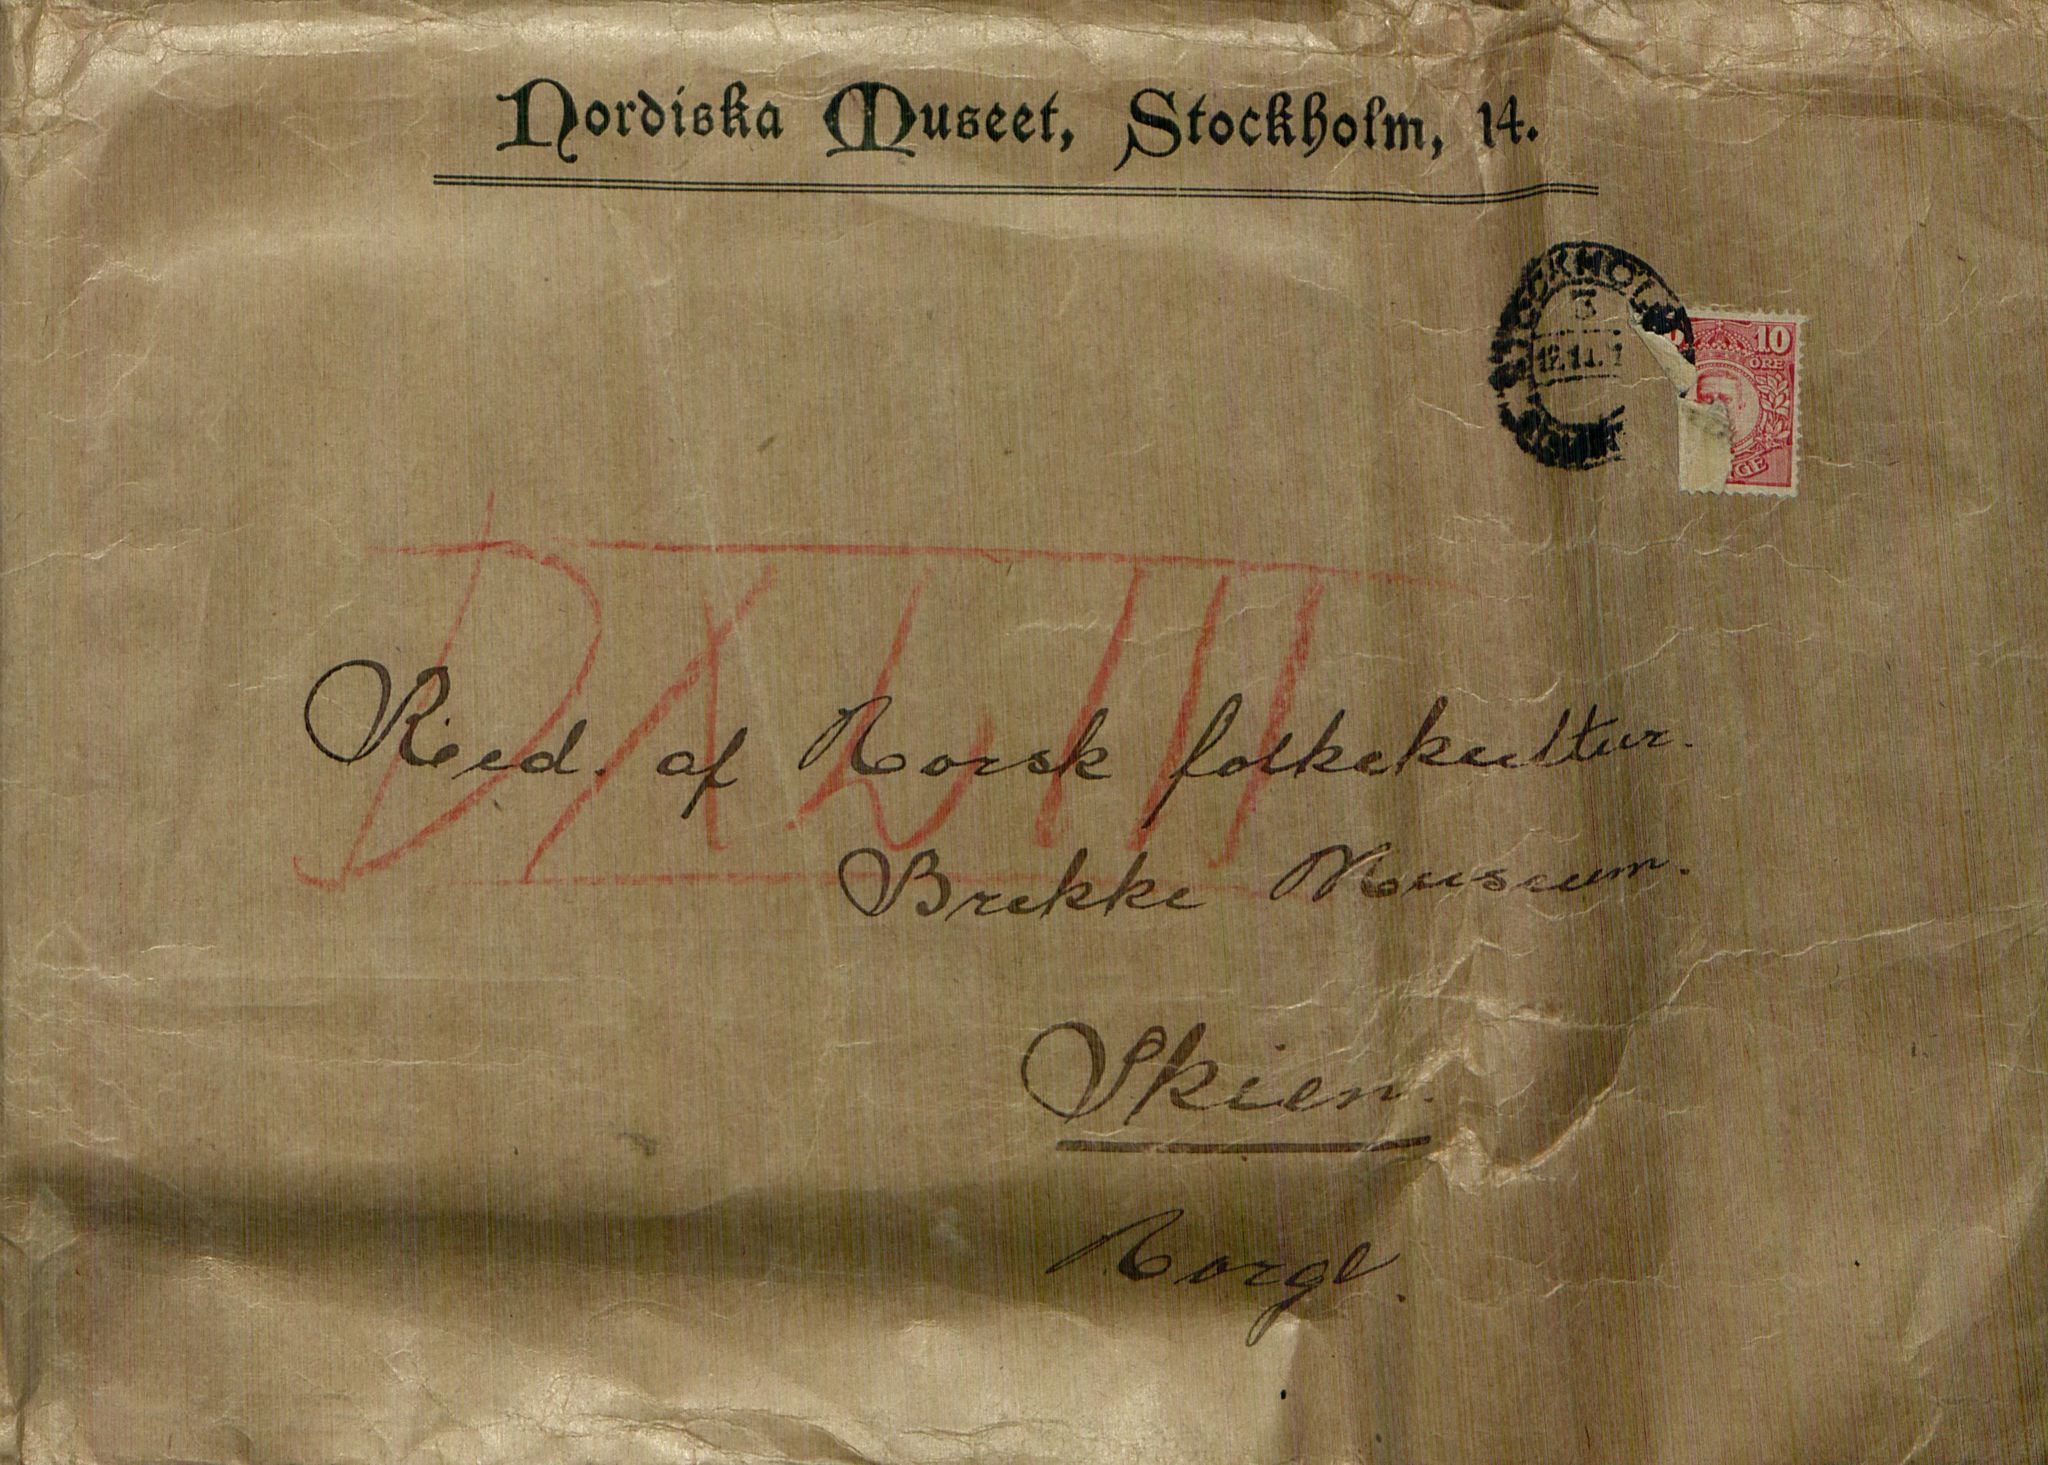 Nordiska Museet, Stockholm, 14.
STOCKHOLM
3
10
ÖRE
DXLIII
Red. af Norsk folkekultur.
Brekke Museum.
Skien.
Norge.